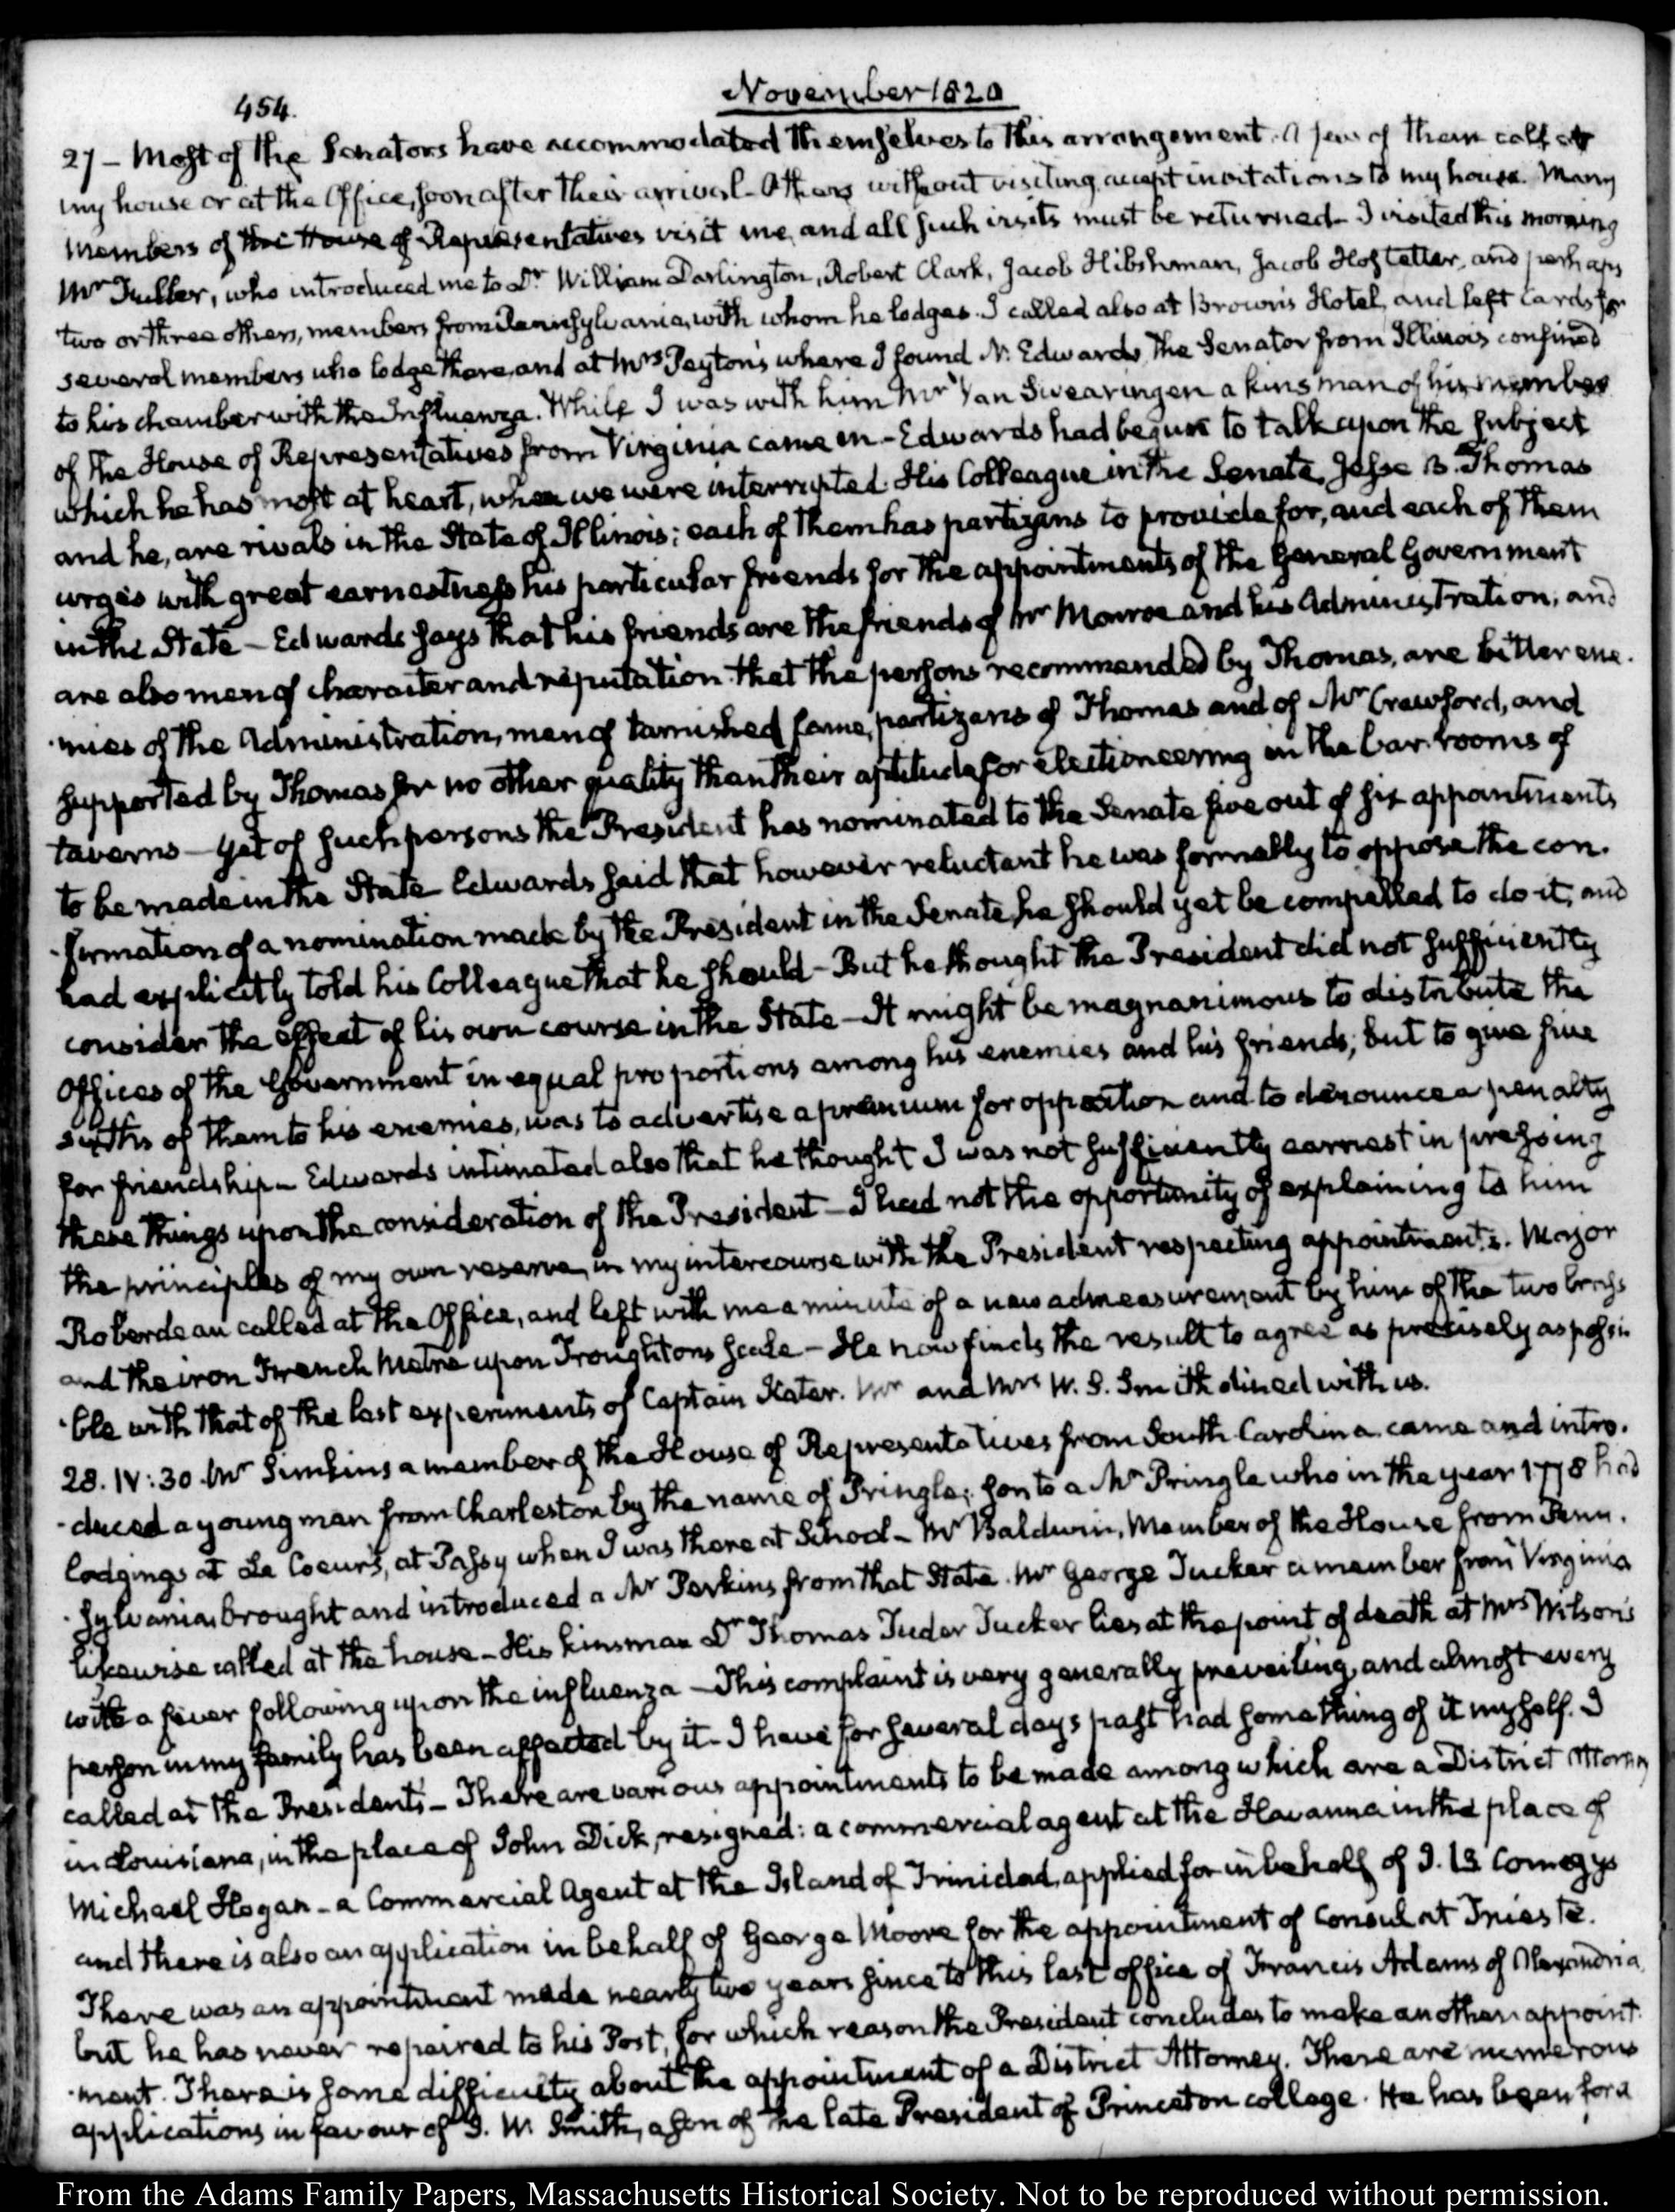 454.
November 1820
27 – Most of the Senators have accommodated themselves to this arrangement. A few of them call at
my house or at the Office, soon after their arrival – Others without visiting accept invitations to my house. Many
members of the House of Representatives visit me, and all such visits must be returned – I visited this morning
Mr Fuller, who introduced me to Dr William Darlington, Robert Clark, Jacob Hibshman, Jacob Hostetter, and perhaps
two or three others, members from Pennsylvania, with whom he lodges. I called also at Brown's Hotel, and left Cards for
several members who lodge there, and at Mrs Peyton's where I found N. Edwards, the Senator from Illinois confined
to his chamber with the Influenza. While I was with him Mr Van Swearingen a kinsman of his, member
of the House of Representatives from Virginia came in – Edwards had begun to talk upon the subject
which he has most at heart, when we were interrupted. His Colleague in the Senate, Jesse B. Thomas
and he, are rivals in the State of Illinois; each of them has partizans to provide for, and each of them
urges with great earnestness his particular friends for the appointments of the General Government
in the State – Edwards says that his friends are the friends of Mr Monroe and his Administration, and
are also men of character and reputation. that the persons recommended by Thomas, are bitter ene-
-mies of the Administration, men of tarnished fame, partizans of Thomas and of Mr Crawford, and
supported by Thomas for no other quality than their aptitude for electioneering in the bar-rooms of
taverns – Yet of such persons the President has nominated to the Senate five out of six appointments
to be made in the State Edwards said that however reluctant he was formally to oppose the con-
-firmation of a nomination made by the President in the Senate, he should yet be compelled to do it, and
had explicitly told his Colleague that he should – But he thought the President did not sufficiently
consider the effect of his own course in the State – It might be magnanimous to distribute the
Offices of the Government in equal proportions among his enemies and his friends; but to give five
sixths of them to his enemies, was to advertise a premium for opposition and to denounce a penalty
for friendship – Edwards intimated also that he thought I was not sufficiently earnest in pressing
these things upon the consideration of the President – I had not the opportunity of explaining to him
the principles of my own reserve, in my intercourse with the President respecting appointments. Major
Roberdeau called at the Office, and left with me a minute of a new admeasurement by him of the two brass
and the iron French Metre upon Troughtons Scale – He now finds the result to agree as precisely as possi-
-ble with that of the last experiments of Captain Kater. Mr and Mrs W. S. Smith dined with us.
28. IV:30. Mr Simkins a member of the House of Representatives from South-Carolina came and intro-
-duced a young man from Charleston by the name of Pringle; son to a Mr Pringle who in the year 1778 had
lodgings at Le Coeur's, at Passy when I was there at School – Mr Baldwin, Member of the House from Penn-
-sylvania, brought and introduced a Mr Perkins from that State. Mr George Tucker a member from Virginia
likewise called at the house – His kinsman Dr Thomas Tudor Tucker lies at the point of death at Mrs Wilson's
with a fever following upon the influenza – This complaint is very generally prevailing, and almost every
person in my family has been affected by it – I have for several days past had something of it myself. I
called at the President's – There are various appointments to be made among which are a District Attorney
in Louisiana, in the place of John Dick, resigned: a commercial agent at the Havanna in the place of
Michael Hogan – a Commercial Agent at the Island of Trinidad, applied for in behalf of J. B. Comegys
and there is also an application in behalf of George Moore for the appointment of Consul at Trieste.
There was an appointment made nearly two years since to this last office of Francis Adams of Alexandria,
but he has never repaired to his Post, for which reason the President concludes to make another appoint-
-ment. There is some difficulty about the appointment of a District Attorney. There are numerous
applications in favour of J. W. Smith, a son of the late President of Princeton college. He has been for a
From the Adams Family Papers, Massachusetts Historical Society. Not to be reproduced without permission.